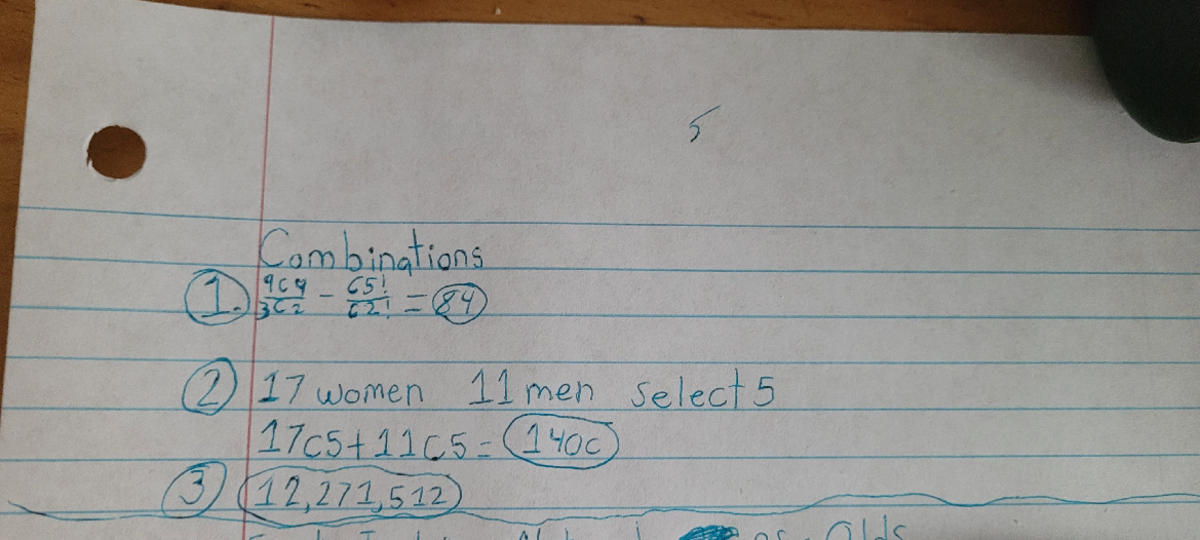 5
Combinations
1. 9C4/3C2 - C5!/C2! = 84
2 17 women 11 men select 5
17C5+11C5= 140C
3 12,271,512